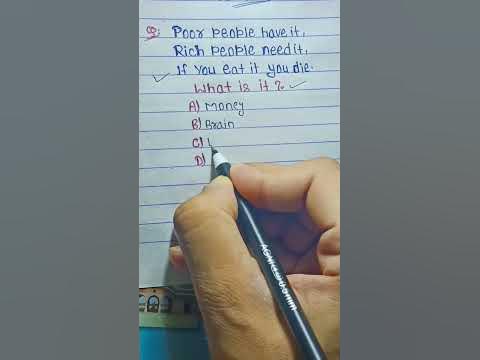 Q:- Poor people have it,
Rich people need it,
If you eat it you die.
What is it?
A) Money
B) Brain
C)
D)